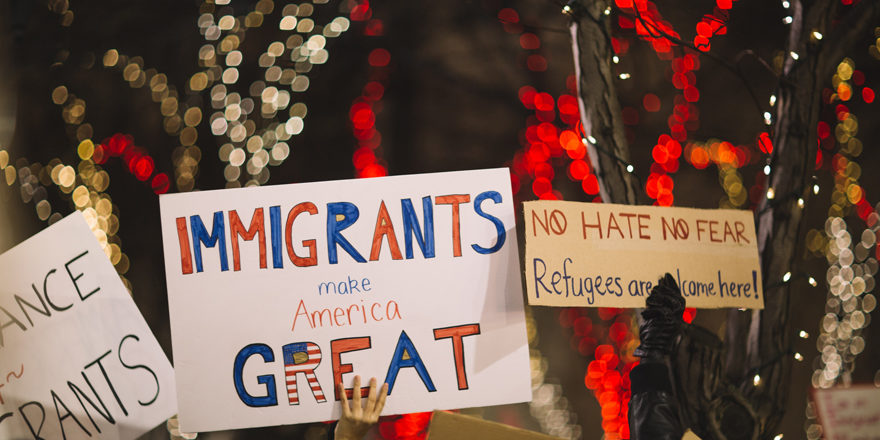 IMMIGRANTS
make
America
GREAT
NO HATE NO FEAR
Refugees are welcome here!
ANCE
GRANTS